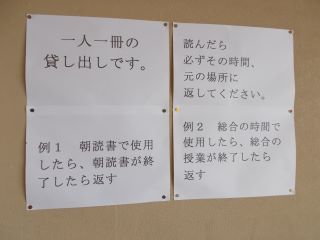 一人一冊の
貸し出しです。
例1　朝読書で使用
したら、朝読書が終
了したら返す
読んだら
必ずその時間、
元の場所に
返してください。
例2　総合の時間で
使用したら、総合の
授業が終了したら
返す